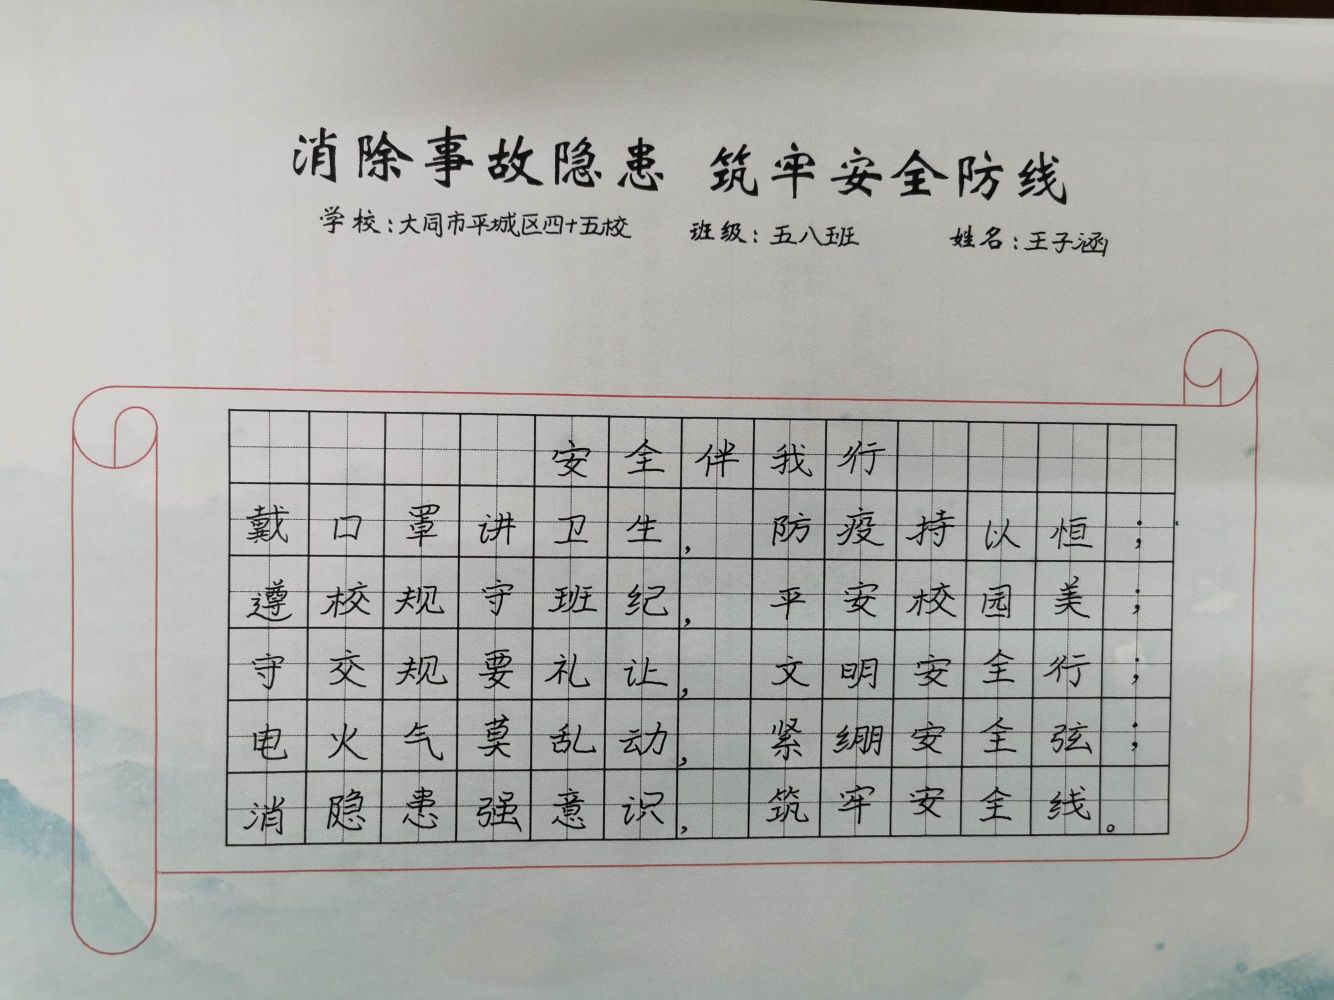 消除事故隐患 筑牢安全防线
学校：大同市平城区四十五校 班级：五八班 姓名：王子涵
安全伴我行
戴口罩讲卫生，防疫持以恒；
遵校规守班纪，平安校园美；
守交规要礼让，文明安全行；
电火气莫乱动，紧绷安全弦；
消隐患强意识，筑牢安全线。